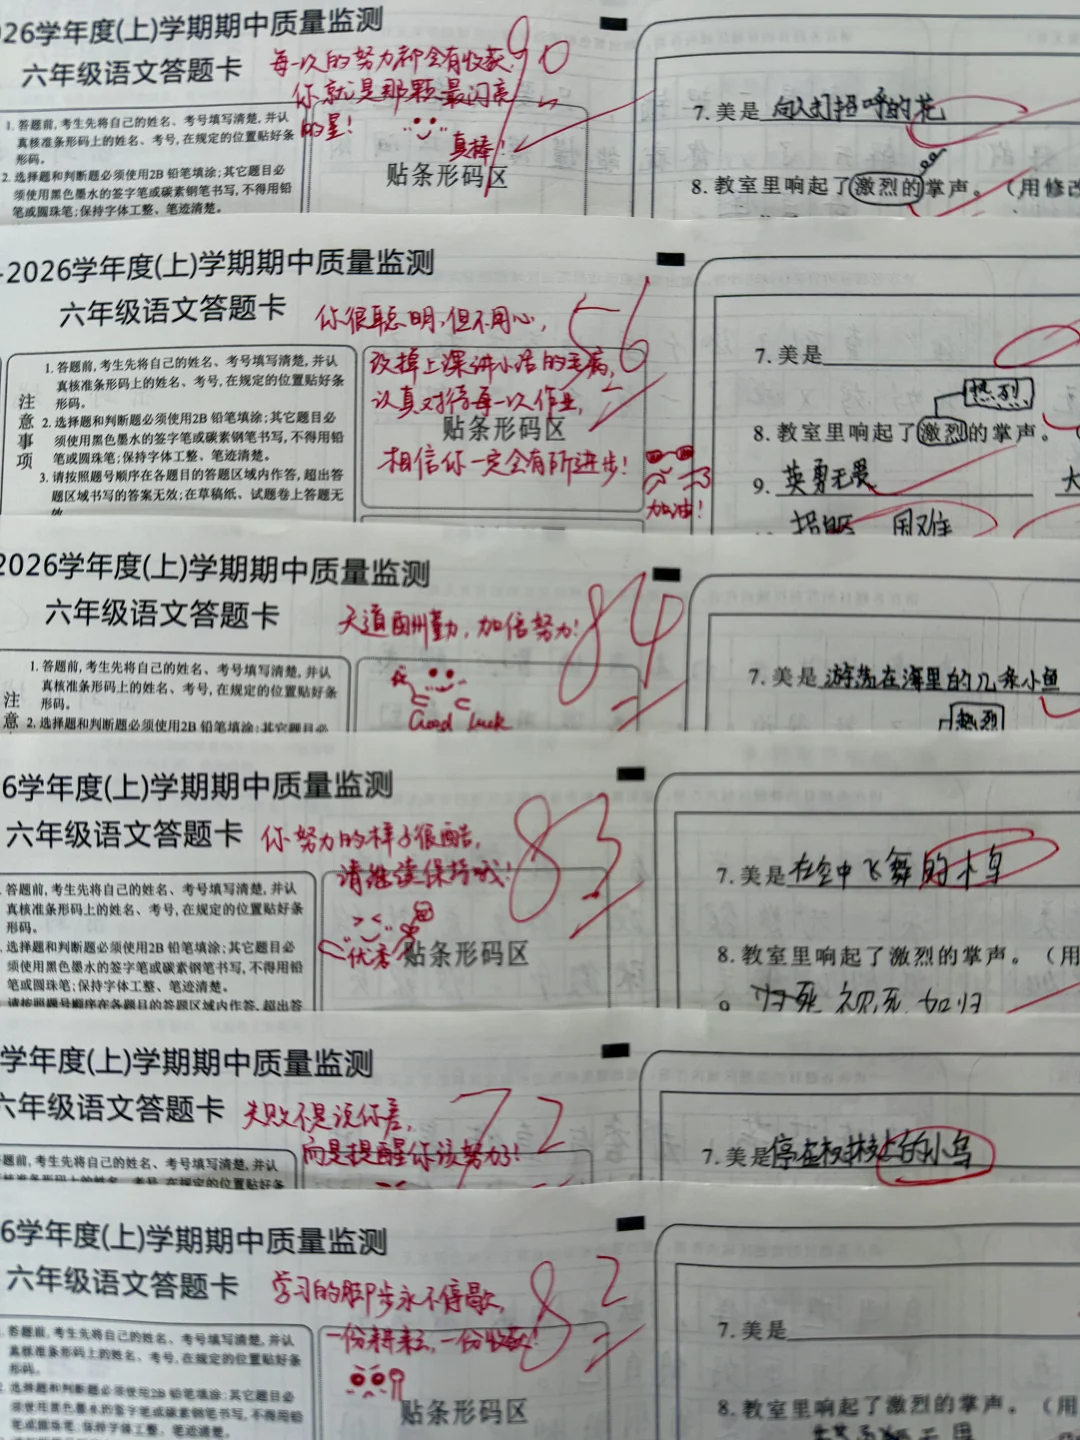 26学年度(上)学期期中质量监测
六年级语文答题卡
每一次的努力都会有收获,
你就是那颗最闪亮
的星!
真棒!
90
1. 答题前,考生先将自己的姓名、考号填写清楚,并认
真核准条形码上的姓名、考号,在规定的位置贴好条
形码。
2. 选择题和判断题必须使用2B 铅笔填涂;其它题目必
须使用黑色墨水的签字笔或碳素钢笔书写,不得用铅
笔或圆珠笔;保持字体工整、笔迹清楚。
贴条形码区
7. 美是 向人们招呼的花
8. 教室里响起了激烈的掌声。(用修改
-2026学年度(上)学期期中质量监测
六年级语文答题卡
你很聪明,但不用心,
改掉上课讲小话的毛病,
认真对待每一次作业,
相信你一定会有所进步!
加油!
56
注意事项
1. 答题前,考生先将自己的姓名、考号填写清楚,并认
真核准条形码上的姓名、考号,在规定的位置贴好条
形码。
2. 选择题和判断题必须使用2B 铅笔填涂;其它题目必
须使用黑色墨水的签字笔或碳素钢笔书写,不得用铅
笔或圆珠笔;保持字体工整、笔迹清楚。
3. 请按照题号顺序在各题目的答题区域内作答,超出答
题区域书写的答案无效;在草稿纸、试题卷上答题无
效
贴条形码区
7. 美是
热烈
8. 教室里响起了激烈的掌声。(
9. 英勇无畏 大
困难
2026学年度(上)学期期中质量监测
六年级语文答题卡
天道酬勤,加倍努力!
Good luck
84
注意
1. 答题前,考生先将自己的姓名、考号填写清楚,并认
真核准条形码上的姓名、考号,在规定的位置贴好条
形码。
2. 选择题和判断题必须使用2B 铅笔填涂;其它题目必
7. 美是 游荡在海里的几条小鱼
热烈
6学年度(上)学期期中质量监测
六年级语文答题卡
你努力的样子很酷,
请继续保持哦!
优秀
83
答题前,考生先将自己的姓名、考号填写清楚,并认
真核准条形码上的姓名、考号,在规定的位置贴好条
形码。
选择题和判断题必须使用2B 铅笔填涂;其它题目必
须使用黑色墨水的签字笔或碳素钢笔书写,不得用铅
笔或圆珠笔;保持字体工整、笔迹清楚。
请按照题号顺序在各题目的答题区域内作答,超出答
贴条形码区
7. 美是 在空中飞舞的小鸟
8. 教室里响起了激烈的掌声。(用
9 视死如归
学年度(上)学期期中质量监测
六年级语文答题卡
失败不是说你差,
而是提醒你该努力了!
72
题前,考生先将自己的姓名、考号填写清楚,并认
真核准条形码上的姓名、考号,在规定的位置贴好条
7. 美是停在树枝上的小鸟
6学年度(上)学期期中质量监测
六年级语文答题卡
学习的脚步永不停歇,
一份耕耘,一份收获!
82
答题前,考生先将自己的姓名、考号填写清楚,并认
真核准条形码上的姓名、考号,在规定的位置贴好条
形码。
选择题和判断题必须使用2B 铅笔填涂;其它题目必
须使用黑色墨水的签字笔或碳素钢笔书写,不得用铅
笔或圆珠笔;保持字体工整、笔迹清楚。
贴条形码区
7. 美是
8. 教室里响起了激烈的掌声。(用